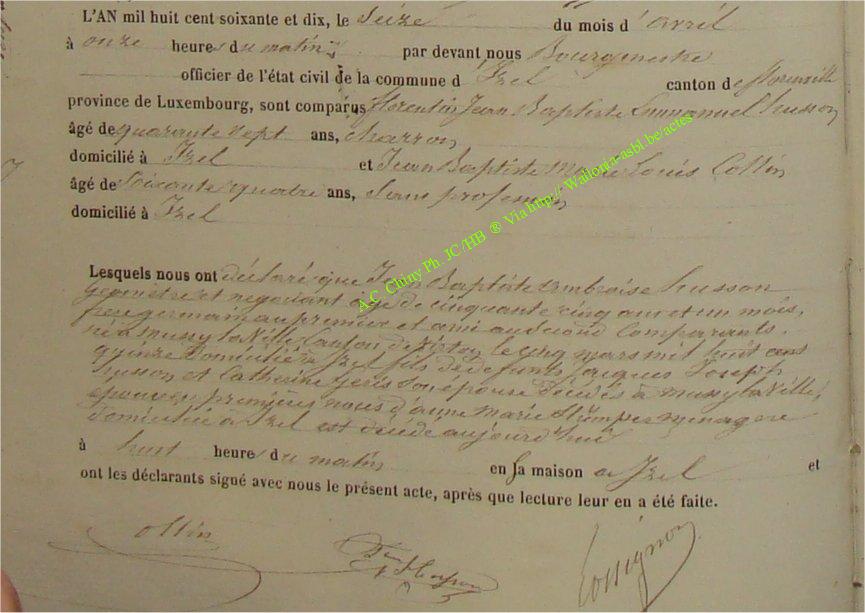 L'AN mil huit cent soixante et dix, le Seize du mois d' avril
à onze heures du matin par devant nous Bourgmestre
officier de l'état civil de la commune d' Izel canton de florenville
province de Luxembourg, sont comparus florentin Jean Baptiste Emmanuel husson
âgé de quarante sept ans, charron
domicilié à Izel et Jean Baptiste Marie Louis Collin
âgé de Soixante quatre ans, Sans profession
domicilié à Izel
Lesquels nous ont déclaré que Jean Baptiste Ambroise husson
géomètre et négociant agé de cinquante cinq ans et un mois,
frere germain au premier et ami au second Comparants,
né à mussy la Ville canton de Virton le cinq mars mil huit cent
quinze domicilié à Izel fils de defunts Jacques Joseph
husson et Catherine son épouse décédés à mussy la Ville,
époux en premières noces d'anne Marie ménagère
domiciliée à Izel est décédé aujourd'hui
à huit heure du matin en sa maison à Izel et
ont les déclarants signé avec nous le présent acte, après que lecture leur en a été faite.
Collin
Rossignon
A.C. Chiny Ph. JC/HB ® Via http://Wallonia-asbl.be/actes